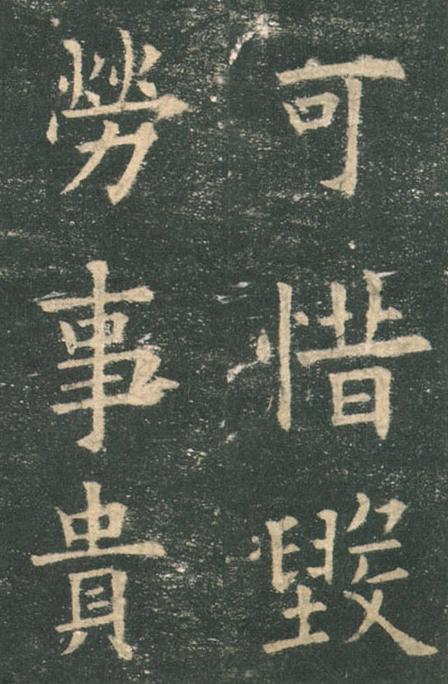 可惜毀
勞事貴